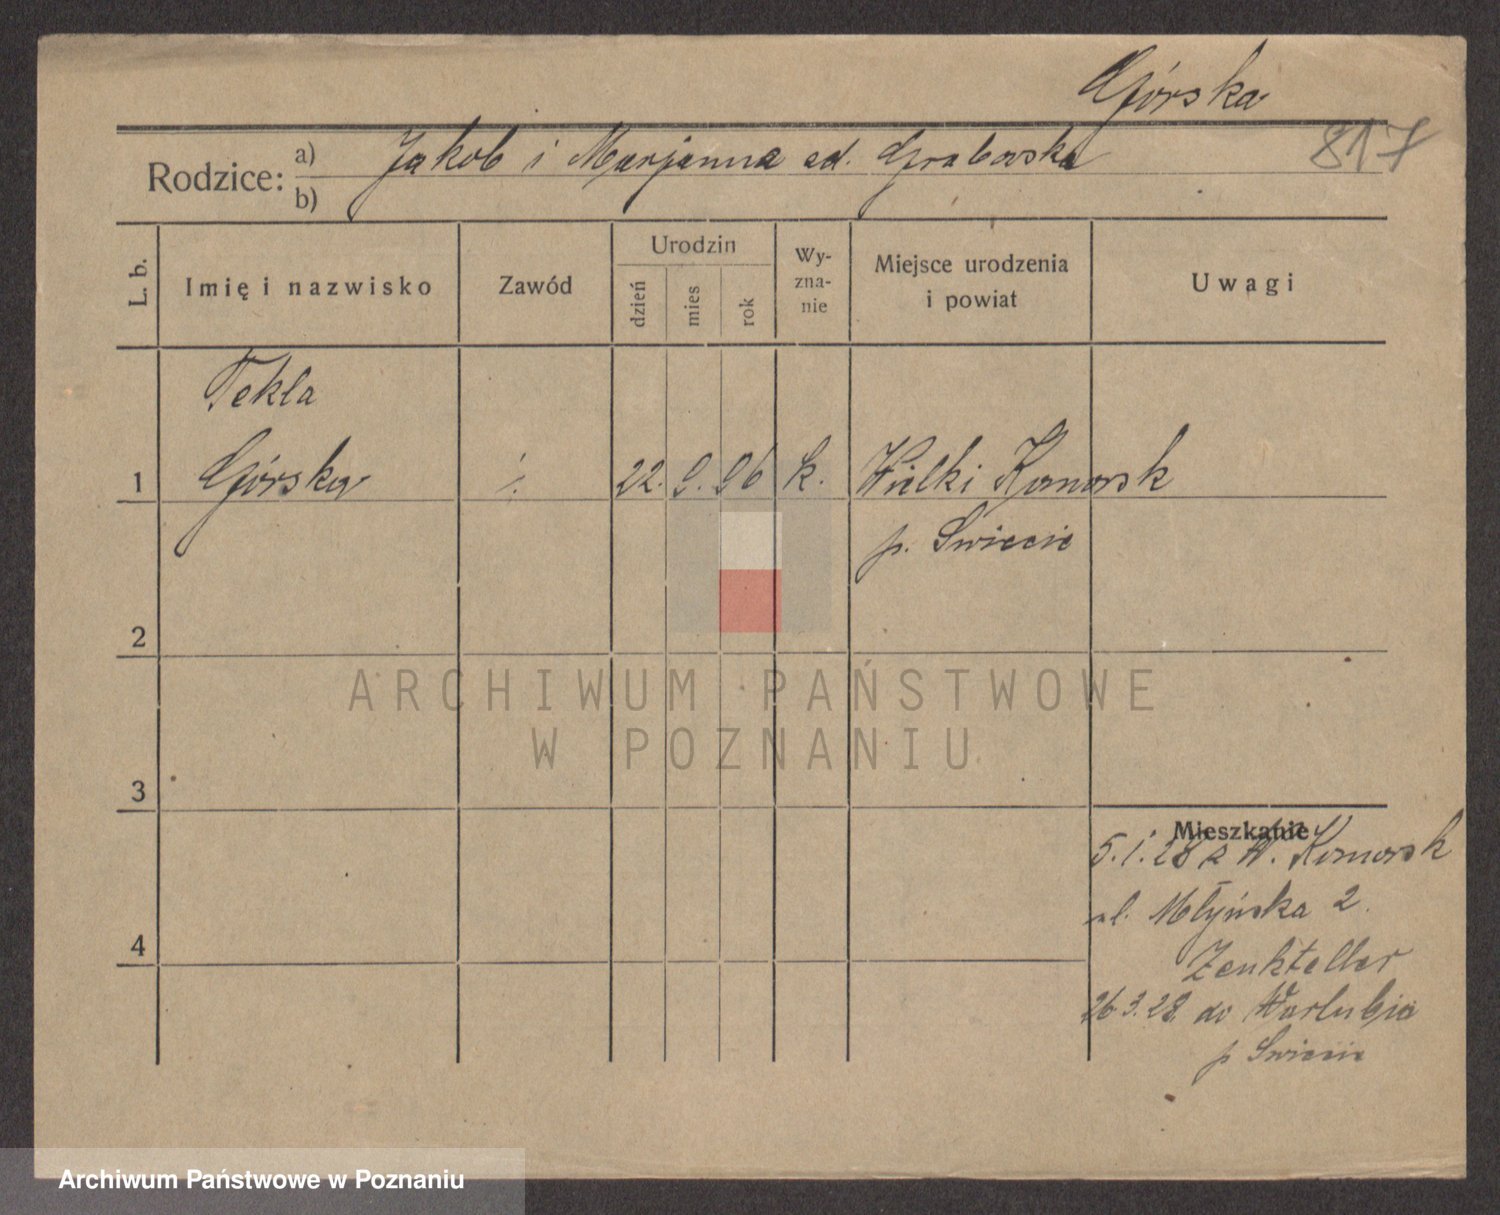 Górska
817
Rodzice:
a) Jakob i Marjanna
b)
Grabowska
L. b.
Imię i nazwisko
Zawód
Urodzin
dzień
mies
rok
Wy-
zna-
nie
Miejsce urodzenia
i powiat
Uwagi
Tekla
1 Górska 22. 9. 96 k. Wielki Komorsk
p. Swiecie
2
ARCHIWUM PAŃSTWOWE
W POZNANIU
3
Mieszkanie
5.1.28 z W. Komorsk
ul. Młyńska 2.
4
Zenkteller
26.3.28. do Warlubia
p Swiecie
Archiwum Państwowe w Poznaniu